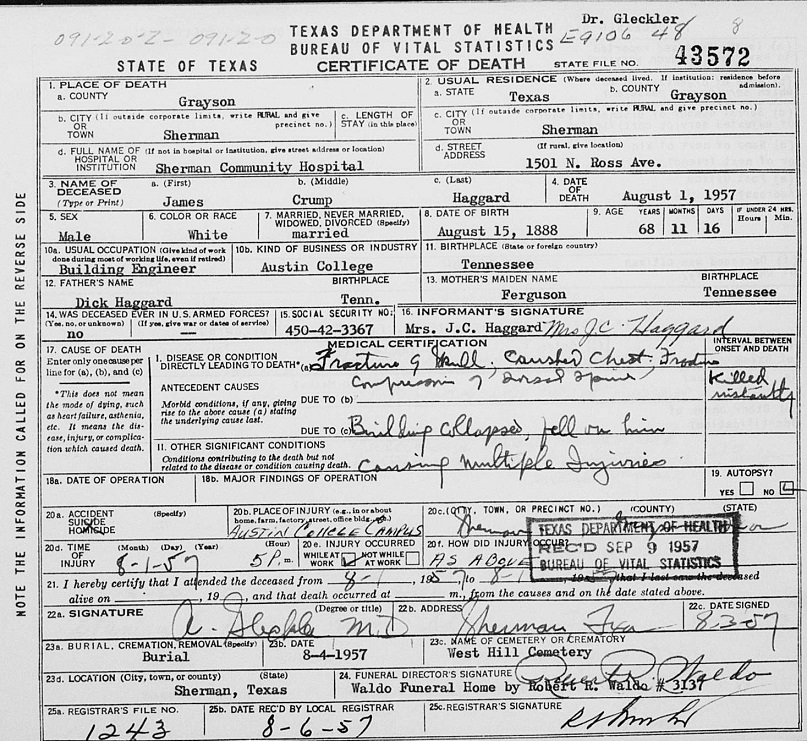 Dr. Gleckler
091-2-0-2- 091-2-0
TEXAS DEPARTMENT OF HEALTH
E9106 48 8
BUREAU OF VITAL STATISTICS
STATE OF TEXAS CERTIFICATE OF DEATH STATE FILE NO. 43572
NOTE THE INFORMATION CALLED FOR ON THE REVERSE SIDE
1. PLACE OF DEATH
a. COUNTY
Grayson
2. USUAL RESIDENCE (Where deceased lived. If institution: residence before admission).
a. STATE b. COUNTY
Texas Grayson
b. CITY (If outside corporate limits, write RURAL and give precinct no.)
OR
TOWN Sherman
c. LENGTH OF STAY (in this place)
c. CITY (If outside corporate limits, write RURAL and give precinct no.)
OR
TOWN Sherman
d. FULL NAME OF (If not in hospital or institution, give street address or location)
HOSPITAL OR
INSTITUTION Sherman Community Hospital
d. STREET ADDRESS (If rural, give location)
1501 N. Ross Ave.
3. NAME OF DECEASED (Type or Print)
a. (First) b. (Middle) c. (Last)
James Crump Haggard
4. DATE OF DEATH
August 1, 1957
5. SEX
Male
6. COLOR OR RACE
White
7. MARRIED, NEVER MARRIED, WIDOWED, DIVORCED (Specify)
married
8. DATE OF BIRTH
August 15, 1888
9. AGE YEARS MONTHS DAYS IF UNDER 24 HRS. Hours Min.
68 11 16
10a. USUAL OCCUPATION (Give kind of work done during most of working life, even if retired)
Building Engineer
10b. KIND OF BUSINESS OR INDUSTRY
Austin College
11. BIRTHPLACE (State or foreign country)
Tennessee
12. FATHER'S NAME BIRTHPLACE
Dick Haggard Tenn.
13. MOTHER'S MAIDEN NAME BIRTHPLACE
Ferguson Tennessee
14. WAS DECEASED EVER IN U.S. ARMED FORCES?
(Yes, no, or unknown) (If yes, give war or dates of service)
no
15. SOCIAL SECURITY NO:
450-42-3367
16. INFORMANT'S SIGNATURE
Mrs. J.C. Haggard Mrs J.C. Haggard
17. CAUSE OF DEATH
Enter only one cause per line for (a), (b), and (c)
*This does not mean the mode of dying, such as heart failure, asthenia, etc. It means the disease, injury, or complication which caused death.
MEDICAL CERTIFICATION
INTERVAL BETWEEN ONSET AND DEATH
1. DISEASE OR CONDITION DIRECTLY LEADING TO DEATH* (a) Fracture of Skull, Crushed Chest. Fracture
Compression of Dorsal Spine
Killed instantly
ANTECEDENT CAUSES
Morbid conditions, if any, giving rise to the above cause (a) stating the underlying cause last.
DUE TO (b)
DUE TO (c) Building collapsed, fell on him
11. OTHER SIGNIFICANT CONDITIONS
Conditions contributing to the death but not related to the disease or condition causing death.
Causing Multiple Injuries
18a. DATE OF OPERATION
18b. MAJOR FINDINGS OF OPERATION
19. AUTOPSY?
YES NO
20a. ACCIDENT (Specify)
SUICIDE
HOMICIDE
20b. PLACE OF INJURY (e.g., in or about home, farm, factory, street, office bldg., etc.)
AUSTIN COLLEGE CAMPUS
20c. (CITY, TOWN, OR PRECINCT NO.) (COUNTY) (STATE)
Sherman
20d. TIME OF INJURY (Month) (Day) (Year) (Hour)
8-1-57 5 P. m.
20e. INJURY OCCURRED
WHILE AT WORK NOT WHILE AT WORK
20f. HOW DID INJURY OCCUR?
AS ABOVE
TEXAS DEPARTMENT OF HEALTH
REC'D SEP 9 1957
BUREAU OF VITAL STATISTICS
21. I hereby certify that I attended the deceased from 8-1, 1957 to 8-1, 1957 that I last saw the deceased
alive on , 19 , and that death occurred at m., from the causes and on the date stated above.
22a. SIGNATURE (Degree or title)
A. Gleckler M.D
22b. ADDRESS
Sherman Texas
22c. DATE SIGNED
8-3-57
23a. BURIAL, CREMATION, REMOVAL (Specify)
Burial
23b. DATE
8-4-1957
23c. NAME OF CEMETERY OR CREMATORY
West Hill Cemetery
23d. LOCATION (City, town, or county) (State)
Sherman, Texas
24. FUNERAL DIRECTOR'S SIGNATURE
Robert R. Waldo
Waldo Funeral Home by Robert R. Waldo # 3137
25a. REGISTRAR'S FILE NO.
1243
25b. DATE REC'D BY LOCAL REGISTRAR
8-6-57
25c. REGISTRAR'S SIGNATURE